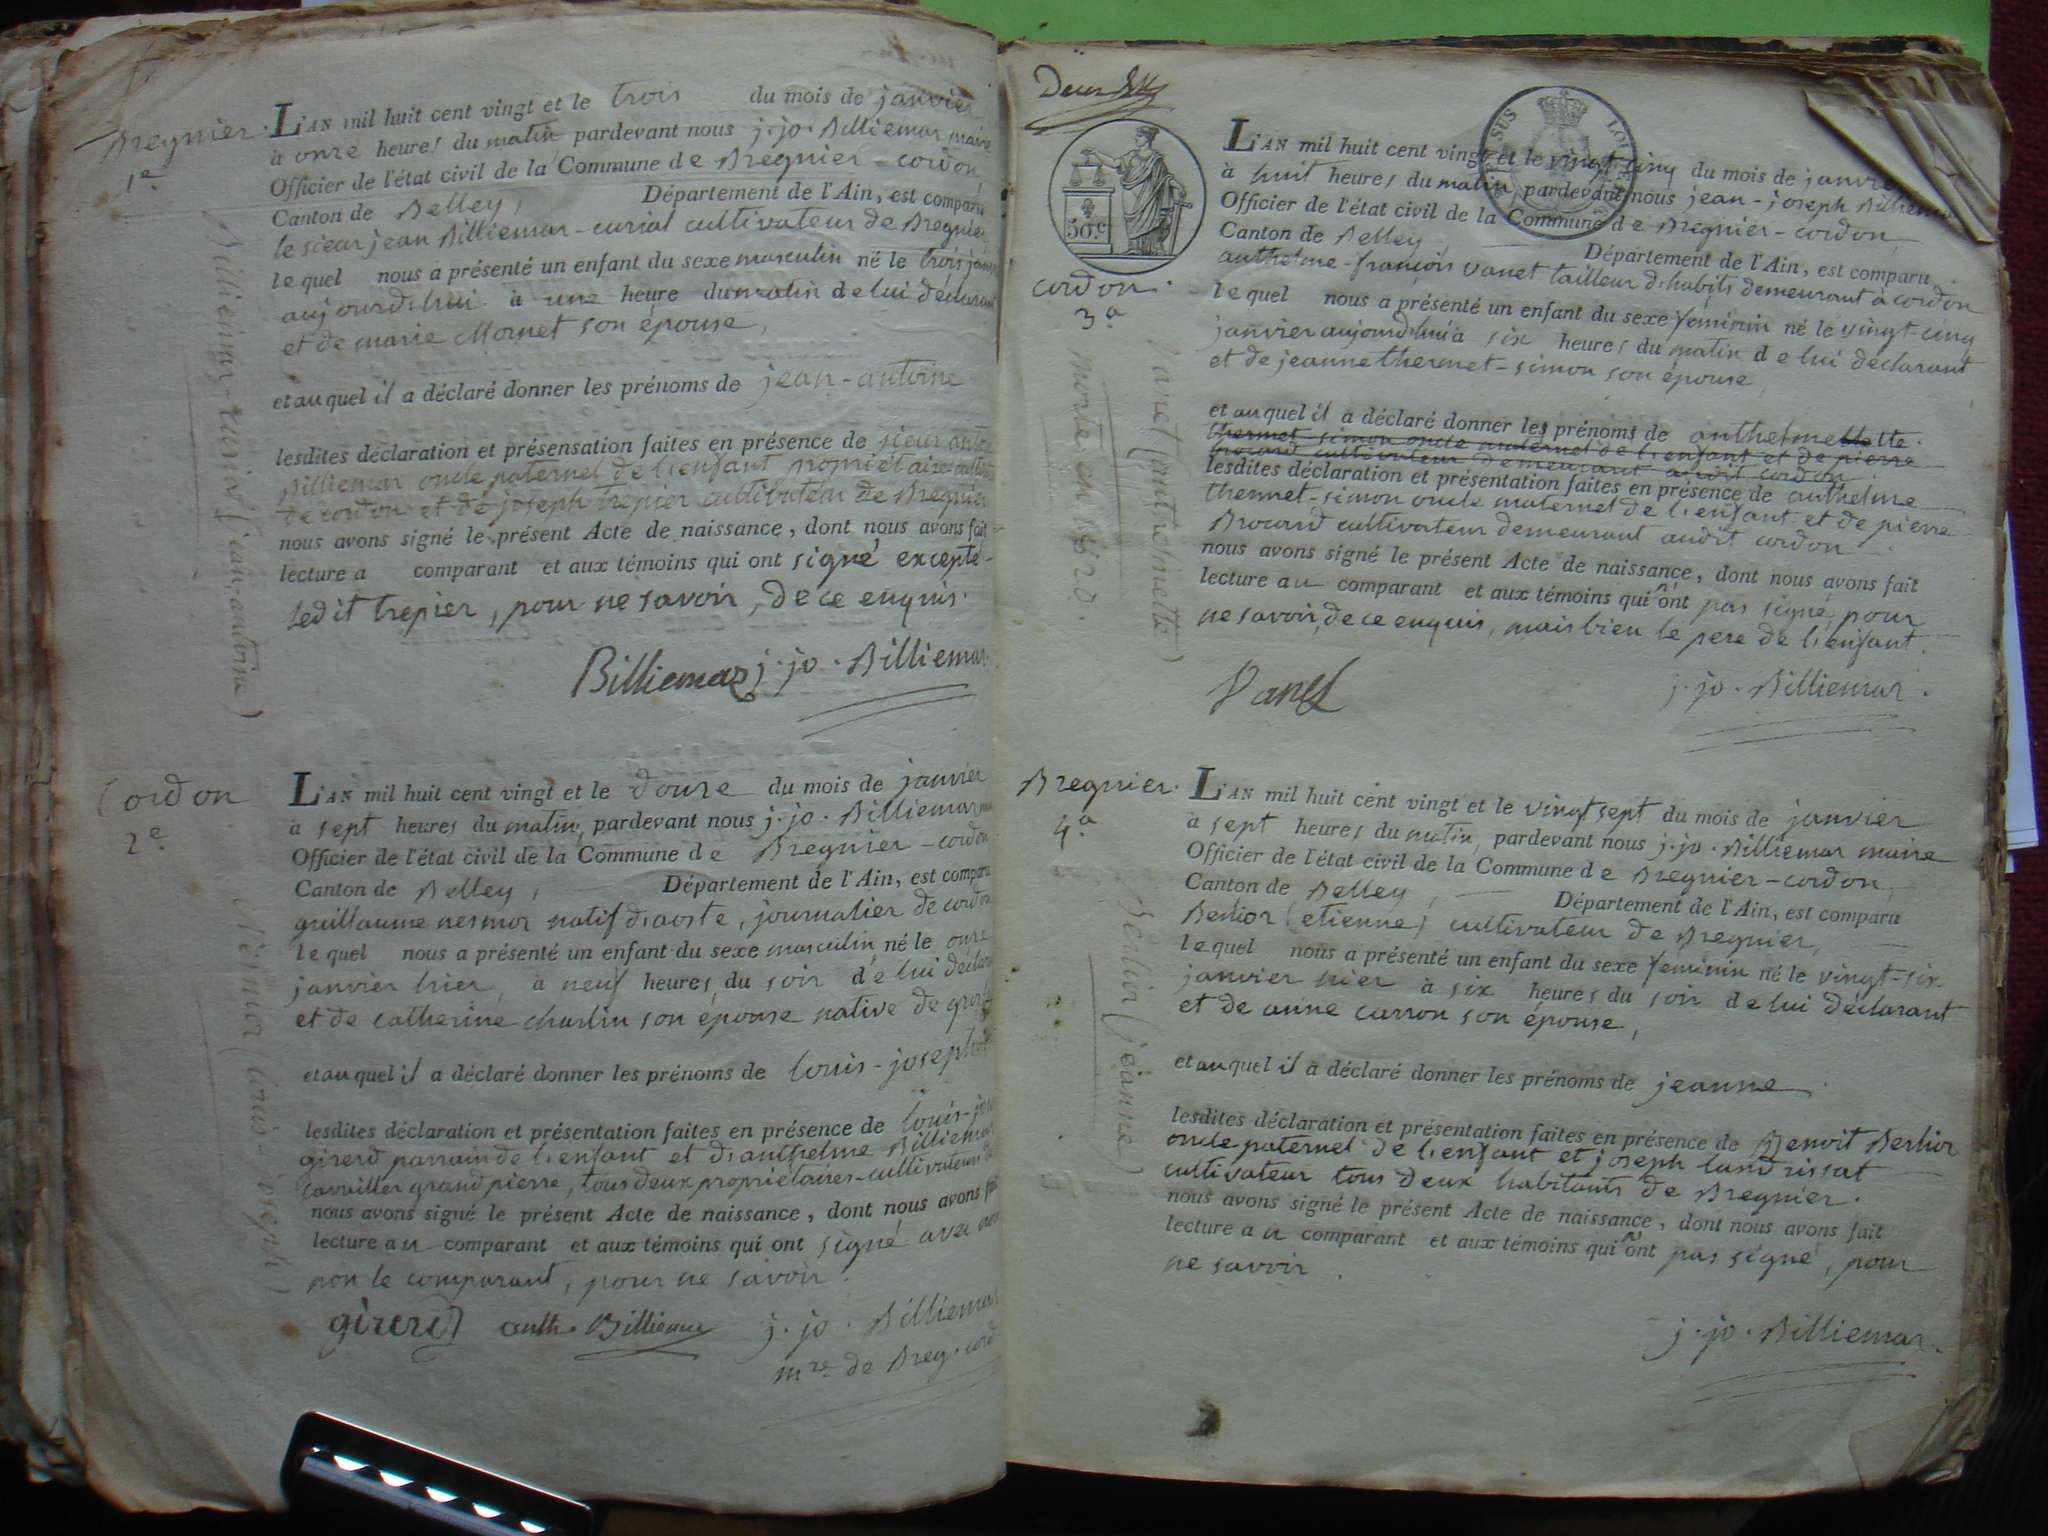 Bregnier.
1e.
L'AN mil huit cent vingt et le trois du mois de janvier
à onze heures du matin pardevant nous j. jo. Billiemaz maire
Officier de l'état civil de la Commune de Bregnier-cordon,
Canton de Belley, Département de l'Ain, est comparu
le sieur jean Billiemaz-curial cultivateur de Bregnier
lequel nous a présenté un enfant du sexe masculin né le trois
aujourd'hui à une heure du matin de lui déclarant
et de marie Mornet son épouse,
et auquel il a déclaré donner les prénoms de jean-antoine
lesdites déclaration et présensation faites en présence de sieur
Billiemaz oncle paternel de l'enfant propriétaire
de cordon et de joseph trepier cultivateur de Bregnier
nous avons signé le présent Acte de naissance, dont nous avons fait
lecture a comparant et aux témoins qui ont signé excepté
ledit trepier, pour ne savoir, de ce enquis.
Billiemaz j. jo. Billiemaz
Billiemaz-curial (jean-antoine)
Cordon
2e.
L'AN mil huit cent vingt et le douze du mois de janvier
à sept heures du matin, pardevant nous j. jo. Billiemaz
Officier de l'état civil de la Commune de Bregnier-cordon
Canton de Belley, Département de l'Ain, est comparu
guillaume nesmoz natif d'aoste, journalier de cordon
lequel nous a présenté un enfant du sexe masculin né le onze
janvier hier, à neuf heures du soir de lui déclarant
et de catherine charlin son épouse native de
et auquel il a déclaré donner les prénoms de louis-joseph
lesdites déclaration et présentation faites en présence de louis-
girerd parrain de l'enfant et d'anthelme Billiemaz
grand pierre, tous deux propriétaires-cultivateurs
nous avons signé le présent Acte de naissance, dont nous avons fait
lecture au comparant et aux témoins qui ont signé avec nous
non le comparant, pour ne savoir.
girerd anth. Billiemaz j. jo. Billiemaz
mre. de Breg. cord
(louis-joseph)
Deux
50.c
Cordon.
3e
L'AN mil huit cent vingt et le vingt cinq du mois de janvier
à huit heures du matin, pardevant nous jean-joseph Billiemaz
Officier de l'état civil de la Commune de Bregnier-cordon,
Canton de Belley, Département de l'Ain, est comparu
anthelme-françois vanet tailleur d'habits demeurant à cordon
lequel nous a présenté un enfant du sexe feminin né le vingt-cinq
janvier aujourd'hui à six heures du matin de lui déclarant
et de jeanne thermet-simon son épouse,
et auquel il a déclaré donner les prénoms de anthelmette.
thermet-simon oncle maternel de l'enfant et de pierre
brocard cultivateur demeurant audit cordon
lesdites déclaration et présentation faites en présence de anthelme
thermet-simon oncle maternel de l'enfant et de pierre
Brocard cultivateur demeurant audit cordon.
nous avons signé le présent Acte de naissance, dont nous avons fait
lecture au comparant et aux témoins qui n'ont pas signé, pour
ne savoir, de ce enquis, mais bien le pere de l'enfant.
Vanet j. jo. Billiemaz.
Vanet (anthelmette)
morte en
Bregnier.
4e
L'AN mil huit cent vingt et le vingt sept du mois de janvier
à sept heures du matin, pardevant nous j. jo. Billiemaz maire
Officier de l'état civil de la Commune de Bregnier-cordon,
Canton de Belley, Département de l'Ain, est comparu
Berlior (etienne) cultivateur de Bregnier,
lequel nous a présenté un enfant du sexe feminin né le vingt-six
janvier hier à six heures du soir de lui déclarant
et de anne carron son épouse,
et auquel il a déclaré donner les prénoms de jeanne.
lesdites déclaration et présentation faites en présence de Benoit Berlior
oncle paternel de l'enfant et joseph landrissat
cultivateur tous deux habitants de Bregnier.
nous avons signé le présent Acte de naissance, dont nous avons fait
lecture au comparant et aux témoins qui n'ont pas signé, pour
ne savoir.
j. jo. Billiemaz.
(jeanne)